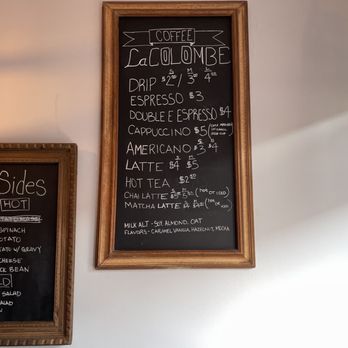 COFFEE
La COLOMBE
S M L
DRIP $2 / 3 4
ESPRESSO $3
DOUBLE ESPRESSO $4
CAPPUCCINO $5
S M
AMERICANO $3 $4
S M
LATTE $4 $5
HOT TEA $2
CHAI LATTE (HOT OR ICED)
MATCHA LATTE
MILK ALT - SOY, ALMOND, OAT
FLAVORS - CARAMEL, VANILLA, HAZELNUT, MOCHA
Sides
HOT
SPINACH
POTATO
W/ GRAVY
CHEESE
BEAN
SALAD
SALAD